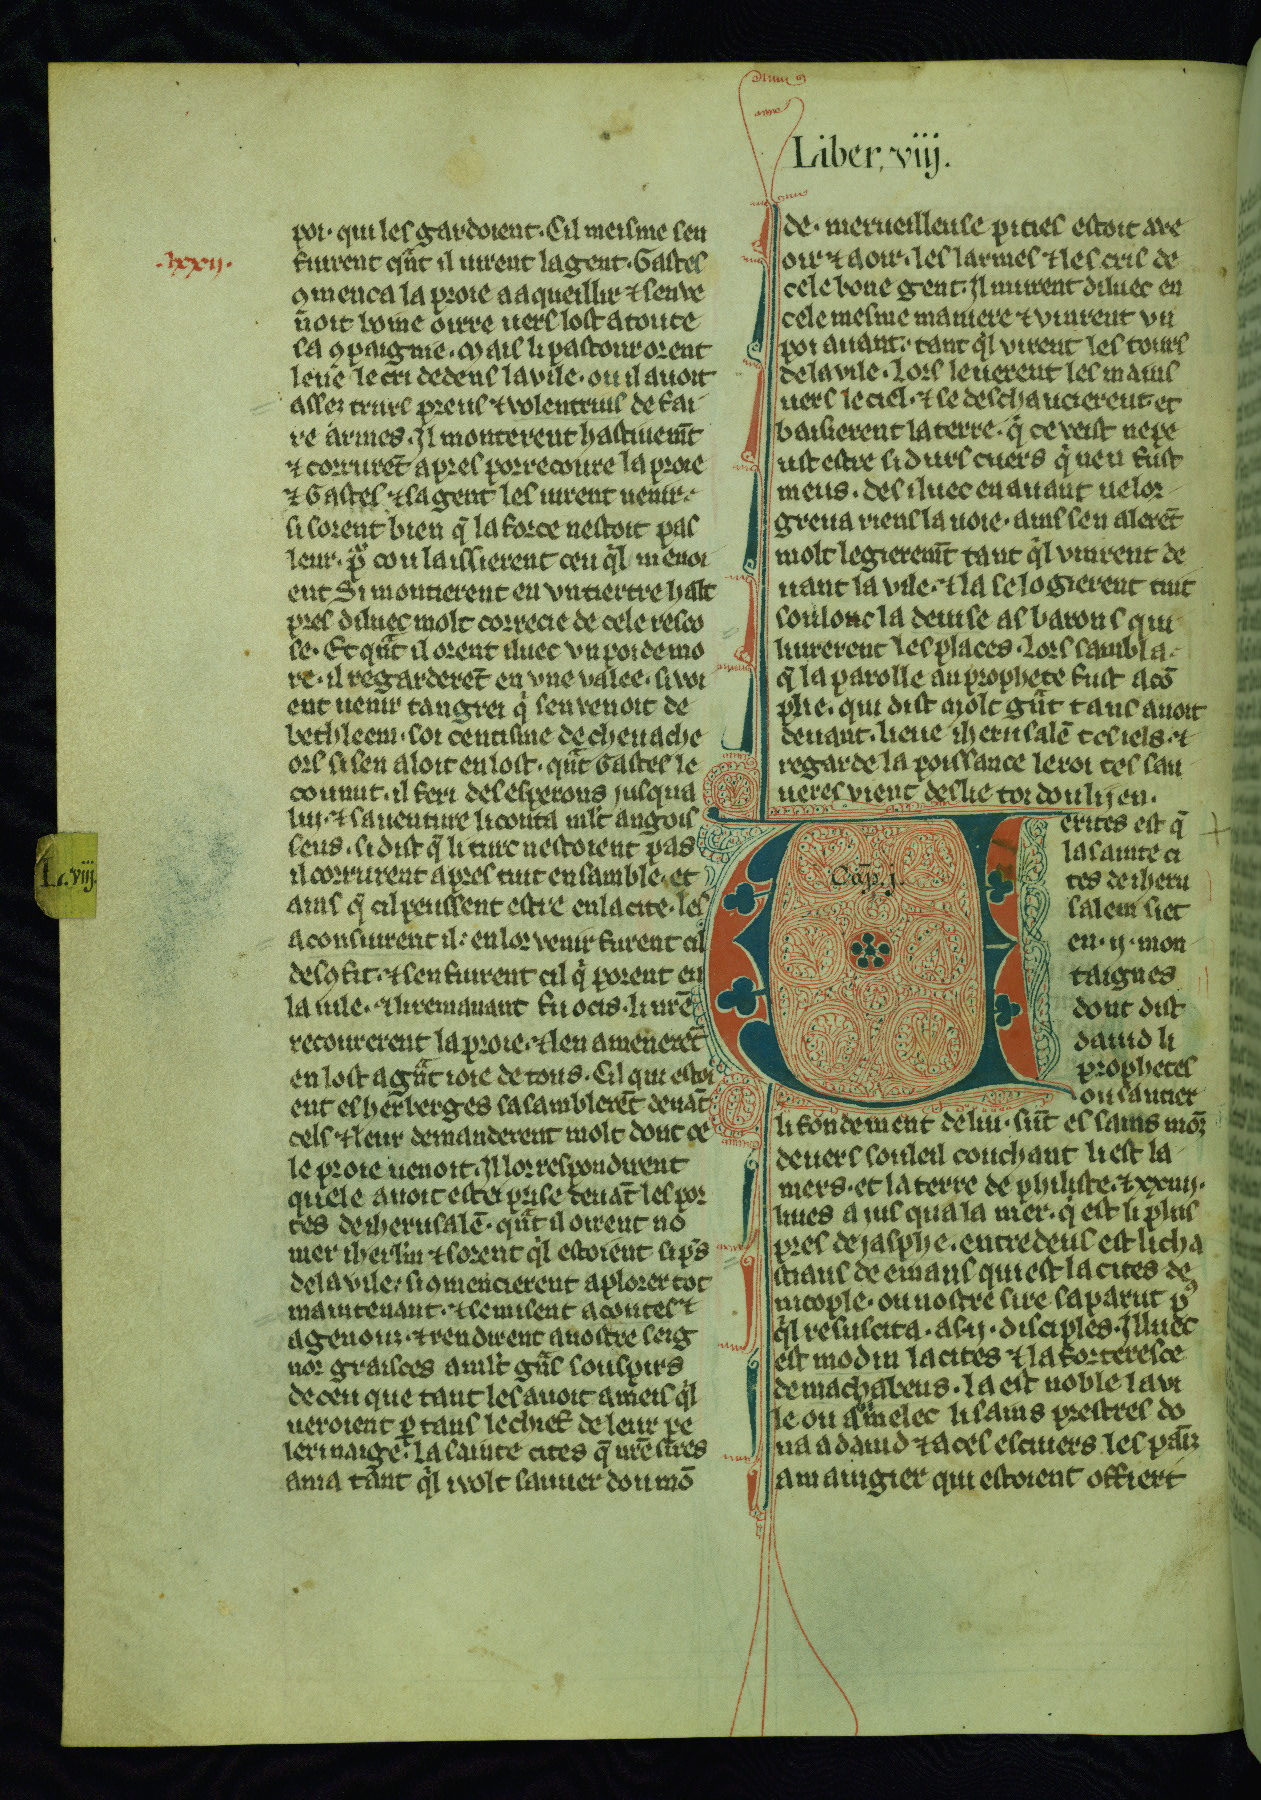 Liber. viij.
.lxxij.
poi· qui les gardoient· Cil meisme sen
fuirent q̃nt il uirent la gent· Gastes
ꝯmenca la proie a aqueillir ⁊ senve
noit bone oirre uers lost a toute
sa ꝯpaignie· Mais li pastour orent
leue le cri dedens la vile· ou il auoit
assez turs preus ⁊ volentrius de fai
re armes· Il monterent hastiuem̃t
⁊ corrurẽt apres por recoure la proie
⁊ Gastes ⁊ sa gent les uirent uenir·
si sorent bien q̃ la force nestoit pas
leur· por cou laissierent ceu q̃l menoi
ent Si monterent en vn tertre halt
pres diluec molt correcie de cele resco
se· Et quãt il orent iluec vn poi demo
re· il regarderẽt en vne valee· si voi
ent uenir tangrei q̃ sen venoit de
bethleem· soi centisme de cheuache
ors si sen aloit en lost· quãt Gastes le
counut· il feri des esperons jusqua
lui· ⁊ sauenture li conta mlt angois
seus· si dist q̃ li turc nestoient pas
il corrurent apres tuit ensamble· et
ains q̃ cil peussent estre en la cite· les
aconsuirent il· en lor venir furent cil
descõfit· ⁊ sen fuirent cil q̃ porent en
la uile· ⁊ li remanant fu ocis· li nrẽ
recourerent la proie· ⁊ len amenerẽt
en lost a grãt ioie de tous· Cil qui estoi
ent es herberges sasamblerẽt deuãt
cels ⁊ leur demanderent molt dont ce
le proie uenoit· Il lor respondirent
quele auoit estei prise deuãt les por
tes de iherusalẽ· quãt il oirent no
mer iherlm̃ ⁊ sorent q̃l estoient si p̃s
de la vile· si ꝯmencierent a plorer tot
maintenant· ⁊ se misent a coutes ⁊
a genouz· ⁊ rendirent a nostre seig
nor graisces a mlt grãs souspirs
de ceu que tant les auoit ameis q̃l
ueroient p tans le chief de leur pe
lerinaige· la sainte cites q̃ nrẽ sires
ama tant q̃l i volt sauuer dou mõ
de· merueilleuse pities estoit a ve
oir ⁊ a oir· les larmes ⁊ les cris de
cele bone gent· Il murent diluec en
cele mesme maniere ⁊ vinrent vn
poi auant· tant q̃l virent les tours
de la vile· Lors leuerent les mains
uers le ciel· ⁊ se deschaucierent· et
baisierent la terre· q̃ ce veist ne pe
ust estre si durs cuers q̃ neu fust
meus· des iluec en auant ne lor
greua riens la uoie· ains sen alerẽt
molt legierem̃t tant q̃l vinrent de
uant la vile· ⁊ la se logierent tuit
soulonc la deuise as barons qui
liurerent les places· Lors sambla
q̃ la parolle au prophete fust acõ
plie· qui dist molt grãt tans auoit
deuant· lieue iherusalẽ tes iels· ⁊
regarde la poissance le roi tes sau
ueres vient deslie toi dou lijen·
Cap̃. j.
erites est q̃
la sainte ci
tes de iheru
salem siet
en· ij· mon
taignes
dont dist
dauid li
prophetes
ou sautier
li fondement de lui· sũt es sains mõz
deuers souleil couchant li est la
mers· et la terre de philiste· ⁊ xxiiij·
liues a jusqua la mer· q̃ est li plus
pres de jasphe· entre deus est li cha
stiaus de emaus qui est la cites de
nicople· ou nostre sire saparut p̃s
q̃l resuscita· as· ij· disciples· Illuec
est modin la cites ⁊ la forteresce
de machabeus· la est noble la vi
le ou amelec li sains prestres do
na a dauid ⁊ a ces escuiers les pãiz
a maingier qui estoient offiert
Li. viij.